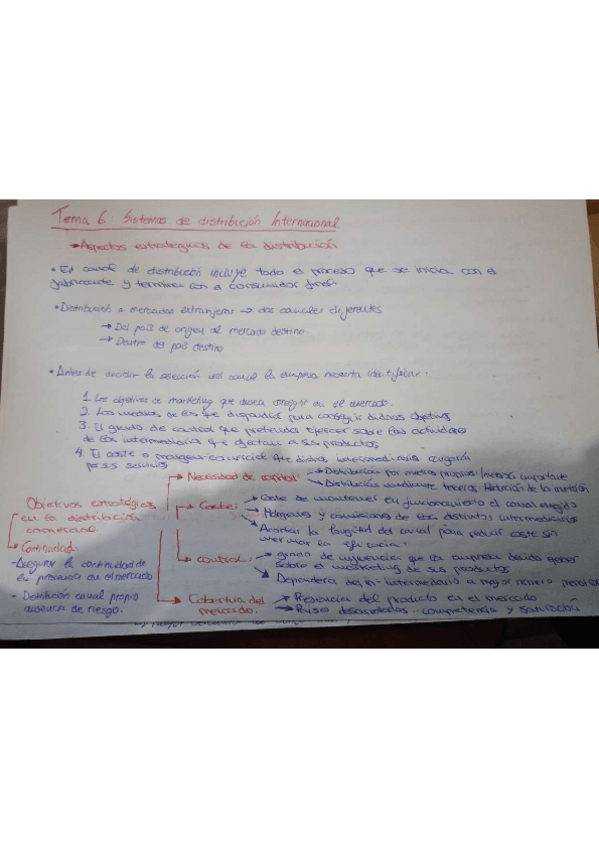 Tema 6: Sistemas de distribución Internacional
→ Aspectos estratégicos de la distribución
• El canal de distribución incluye todo el proceso que se inicia con el
fabricante y termina con el consumidor
• Distribución a mercados extranjeros → dos canales diferentes
→ Del país de origen al mercado destino
→ Dentro del país destino
• Antes de decidir la selección del canal la empresa necesita identificar:
1. Los objetivos de marketing que desea conseguir en el mercado.
2. Los medios de los que dispondrá para conseguir dichos objetivos
3. El grado de control que pretenda ejercer sobre las actividades
de los intermediarios que ejecutan a sus productos
4. El coste o margen comercial que dichos intermediarios cargarán
por sus servicios
Objetivos estratégicos
en la distribución
comercial
→ Necesidad de capital:
→ Distribución por medios propios: Inversión importante
→ Distribución mediante terceros: Reducción de la inversión
→ Coste:
→ Coste de mantener en funcionamiento el canal elegido
→ Márgenes y comisiones de los distintos intermediarios
→ Acortar la longitud del canal para reducir coste sin
mermar la eficacia.
→ Control:
→ grado de influencia que la empresa desea tener
sobre el marketing de sus productos
→ Dependerá del intermediario a mayor número
→ Cobertura del
mercado:
→ Presencia del producto en el mercado
→ Países desarrollados: competencia y saturación
→ Continuidad:
- Asegurar la continuidad de
su presencia en el mercado
- Distribución canal propio
ausencia de riesgo.